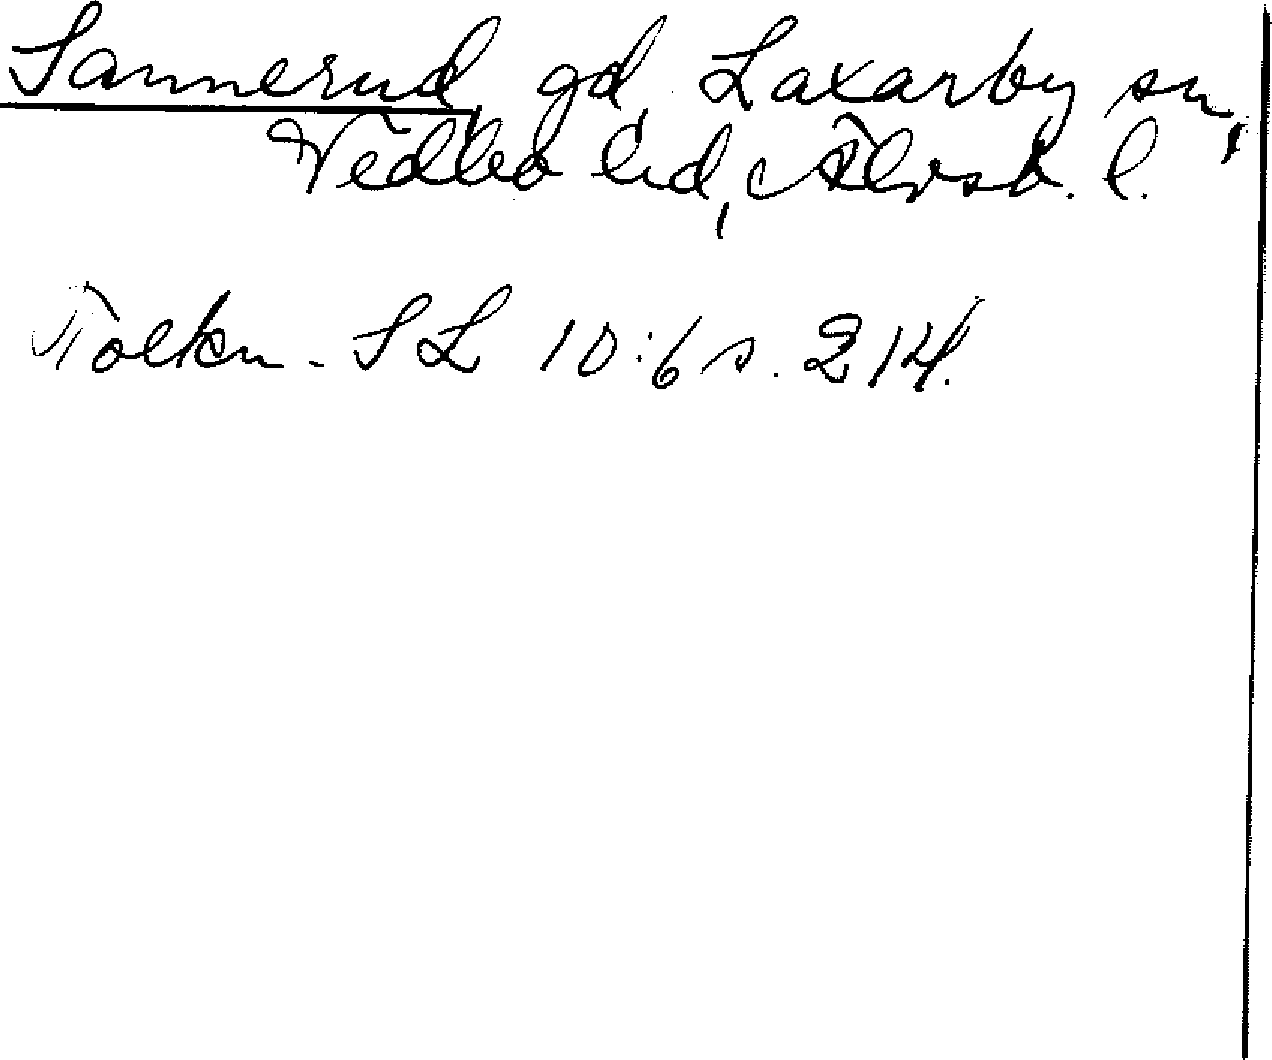 Sannerud, gd, Laxarby sn,
Vedbo hd, Älvsb. l.
Tolkn. SL 10:6 s. 214.